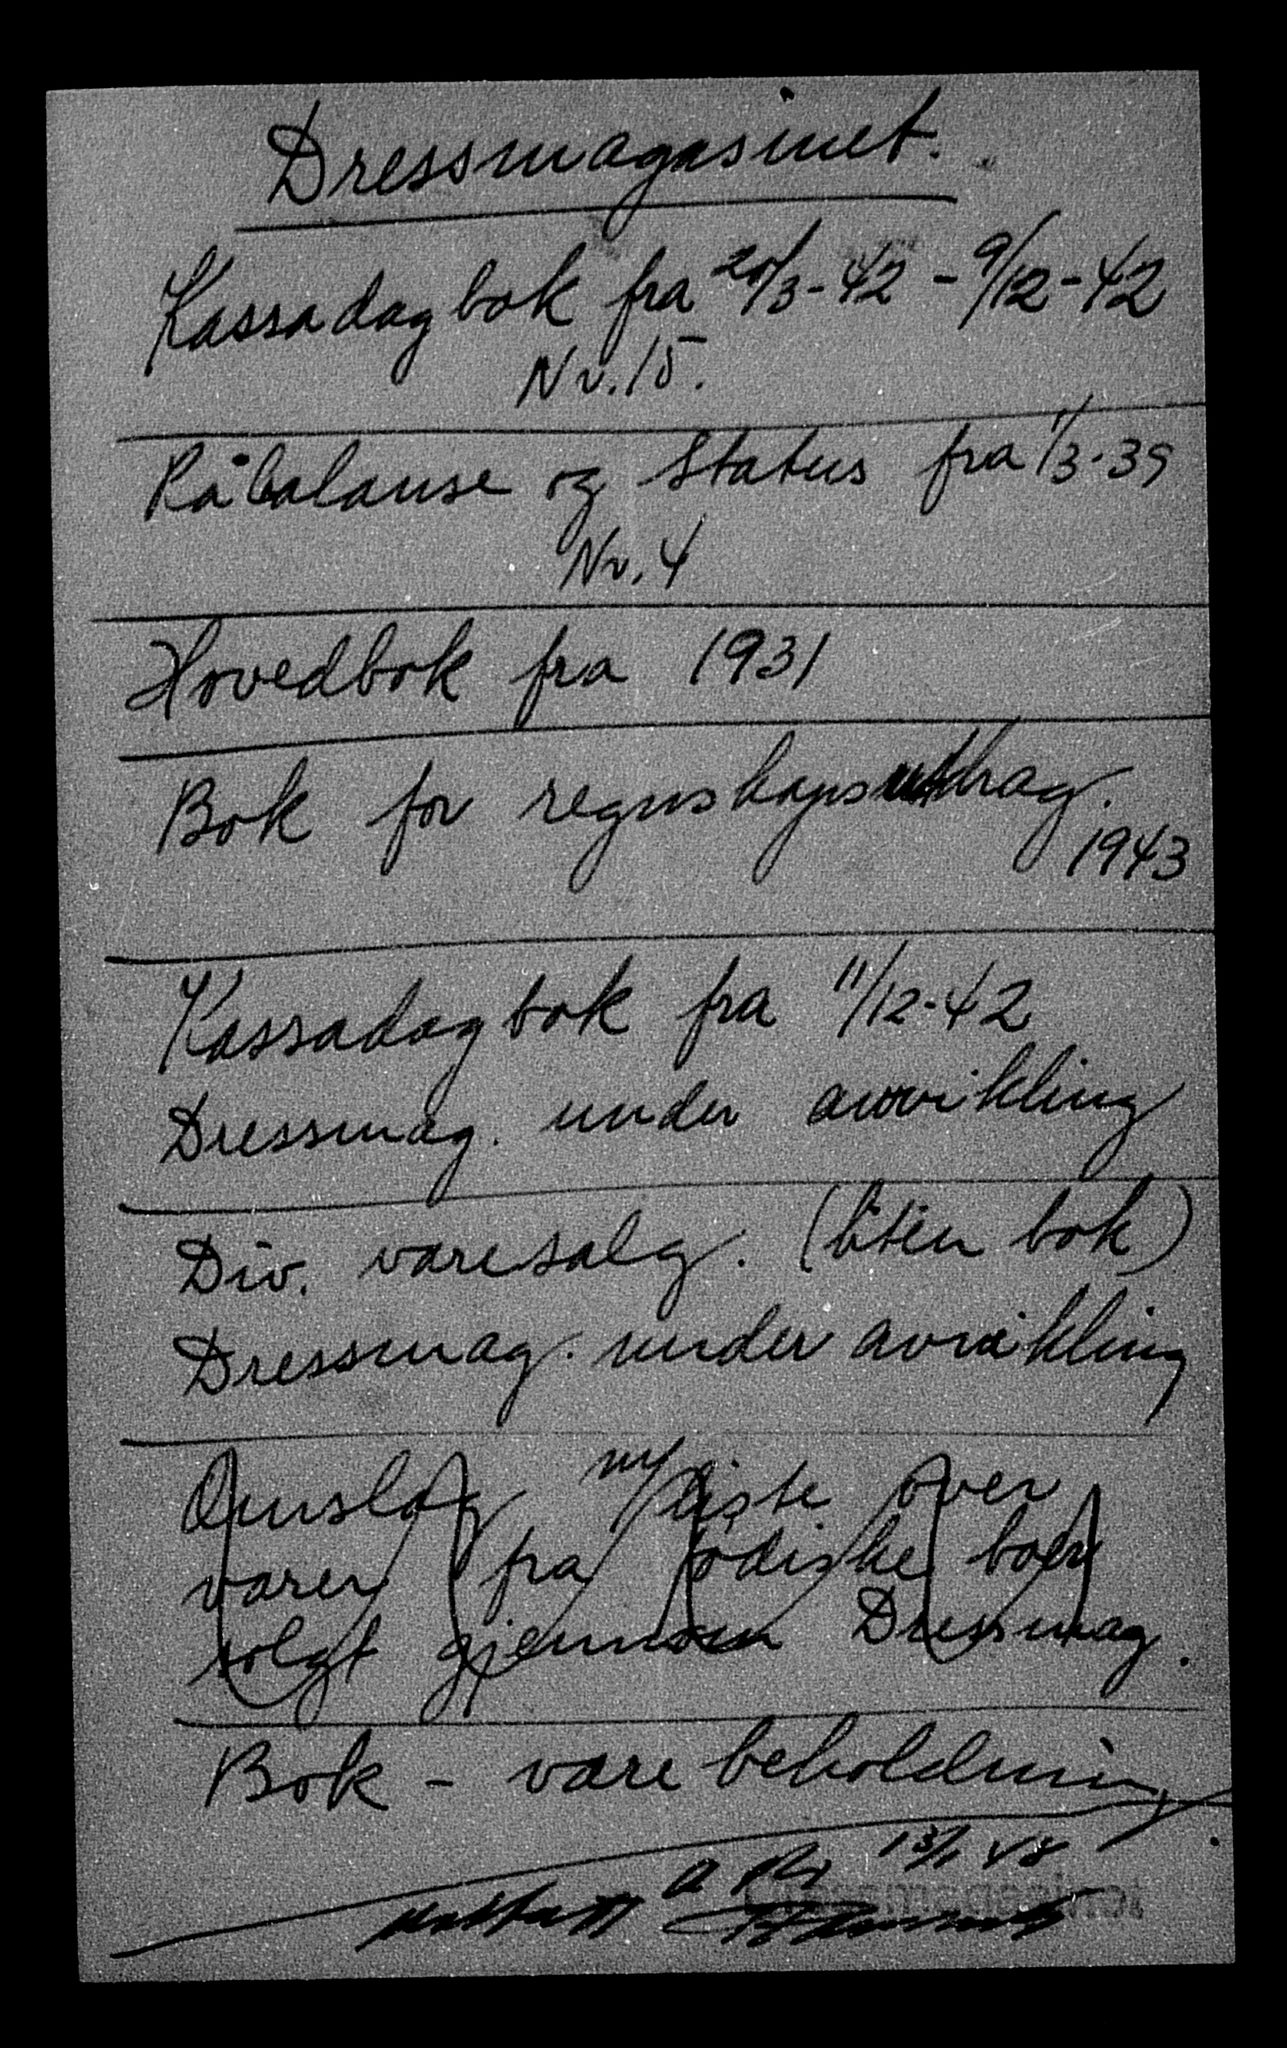 Dressmagasinet.
Kassadagbok fra 20/3-42 - 9/12-42
Nr. 15.
Råbalanse og Status fra 1/3-39
Nr. 4
Hovedbok fra 1931
Bok for regnskapsutdrag.
1943
Kassadagbok fra 11/12-42
Dressmag. under avvikling
Div. varesalg. (liten bok)
Dressmag. under avvikling
Omslag m/liste over
varer fra jødiske boer
solgt gjennom Dressmag.
Bok - varebeholdning
13/1 48
Mottatt
Dressmagasinet